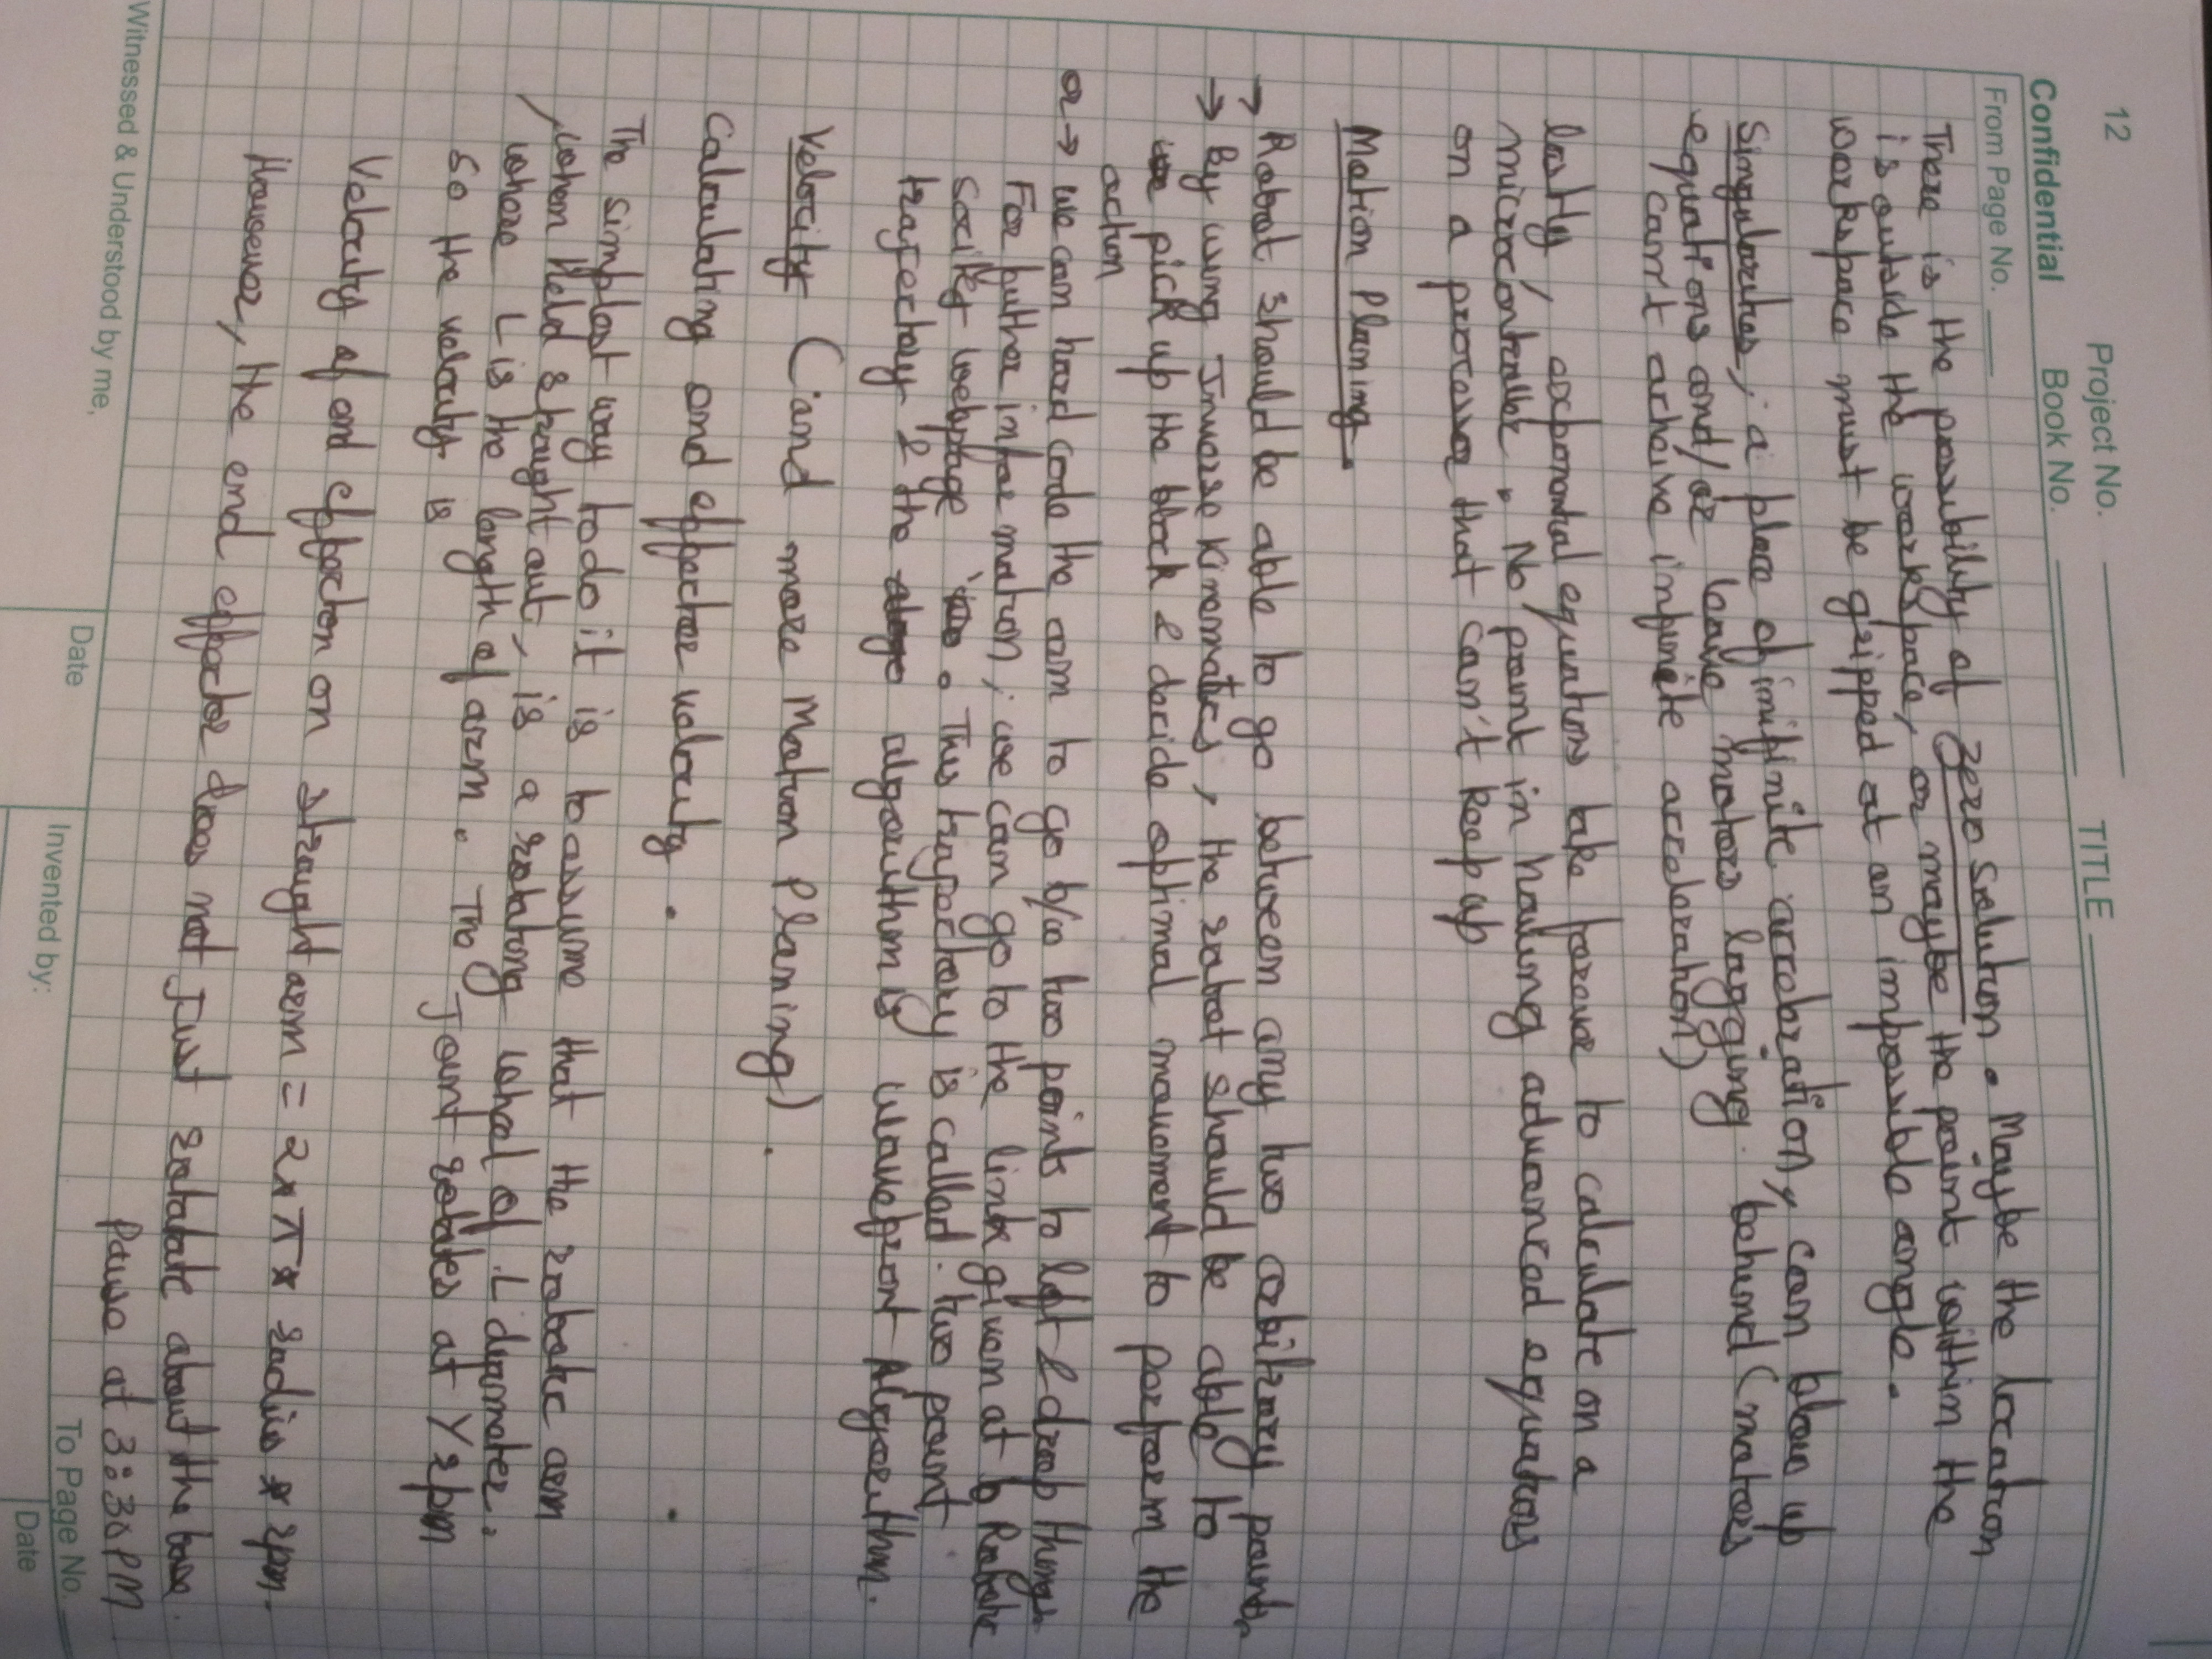 12
Project No. TITLE
Confidential Book No.
From Page No.
There is the possibility of zero solution. Maybe the location
is outside the workspace, or maybe the point within the
workspace must be gripped at an impossible angle.
Singularities, a place of infinite acceleration, can blow up
equations and/or leave motors lagging behind (motors
can't acheive infinite acceleration)
lastly, exponential equations take forever to calculate on a
microcontroller. No point in having advanced equations
on a processor that can't keep up
Motion Planing
→ Robot should be able to go between any two arbitrary points
→ By using Inverse Kinematics, the robot should be able to
pick up the block & decide optimal movement to perform the
action
or → we can hard code the arm to go b/w two points to left & drop things
For futher information; we can go to the link given at Robotic
Society webpage. This trajectory is called two point
trajectory & the algorithm is wavefront Algorithm.
Velocity (and more Motion Planing).
Calculating end effector velocity.
The simplest way to do it is to assume that the robotic arm
, when held straight out, is a rotating wheel of L diameter.
where L is the length of arm. The Joint rotates at Y rpm
so the velocity is
Velocity of end effector on straight arm = 2 * π * radius * rpm.
However, the end effector does not just rotate about the base.
Pause at 3:30 PM
To Page No.
Witnessed & Understood by me,
Date
Invented by:
Date